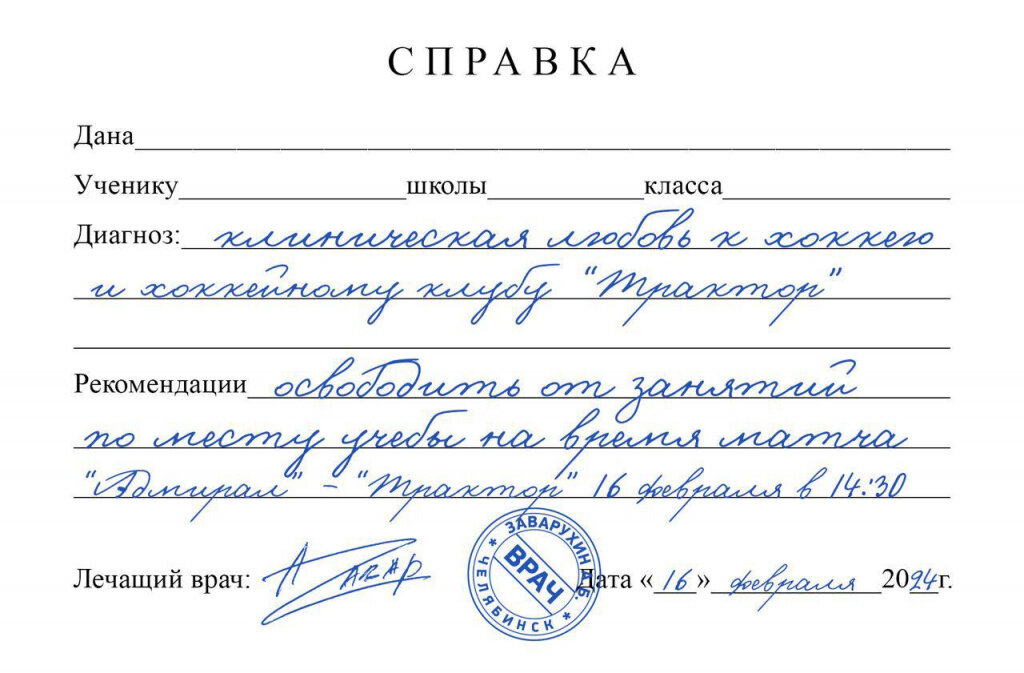 СПРАВКА
Дана
Ученику школы класса
Диагноз: клиническая любовь к хоккею
и хоккейному клубу "Трактор"
Рекомендации освободить от занятий
по месту учебы на время матча
"Адмирал" - "Трактор" 16 февраля в 14:30
ЗАВАРУХИН Н.Б.
ВРАЧ
ЧЕЛЯБИНСК
Лечащий врач: Дата «16» февраля 2024г.